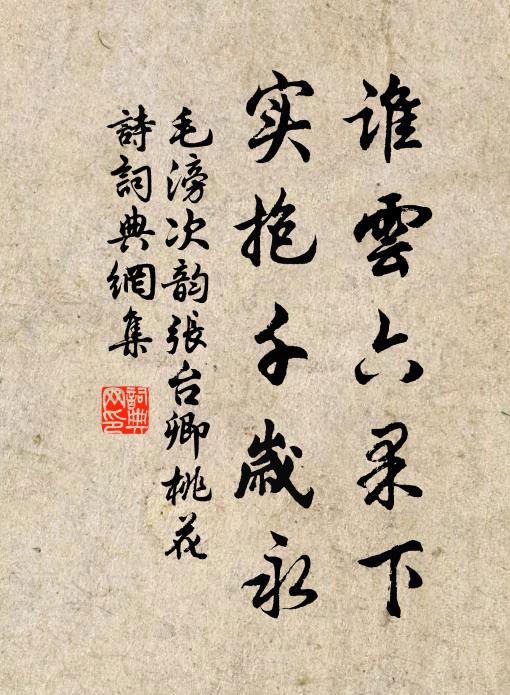 谁雲六果下
实抱千歲永
毛滂次韵張台卿桃花
詩詞典網集
詞典網印